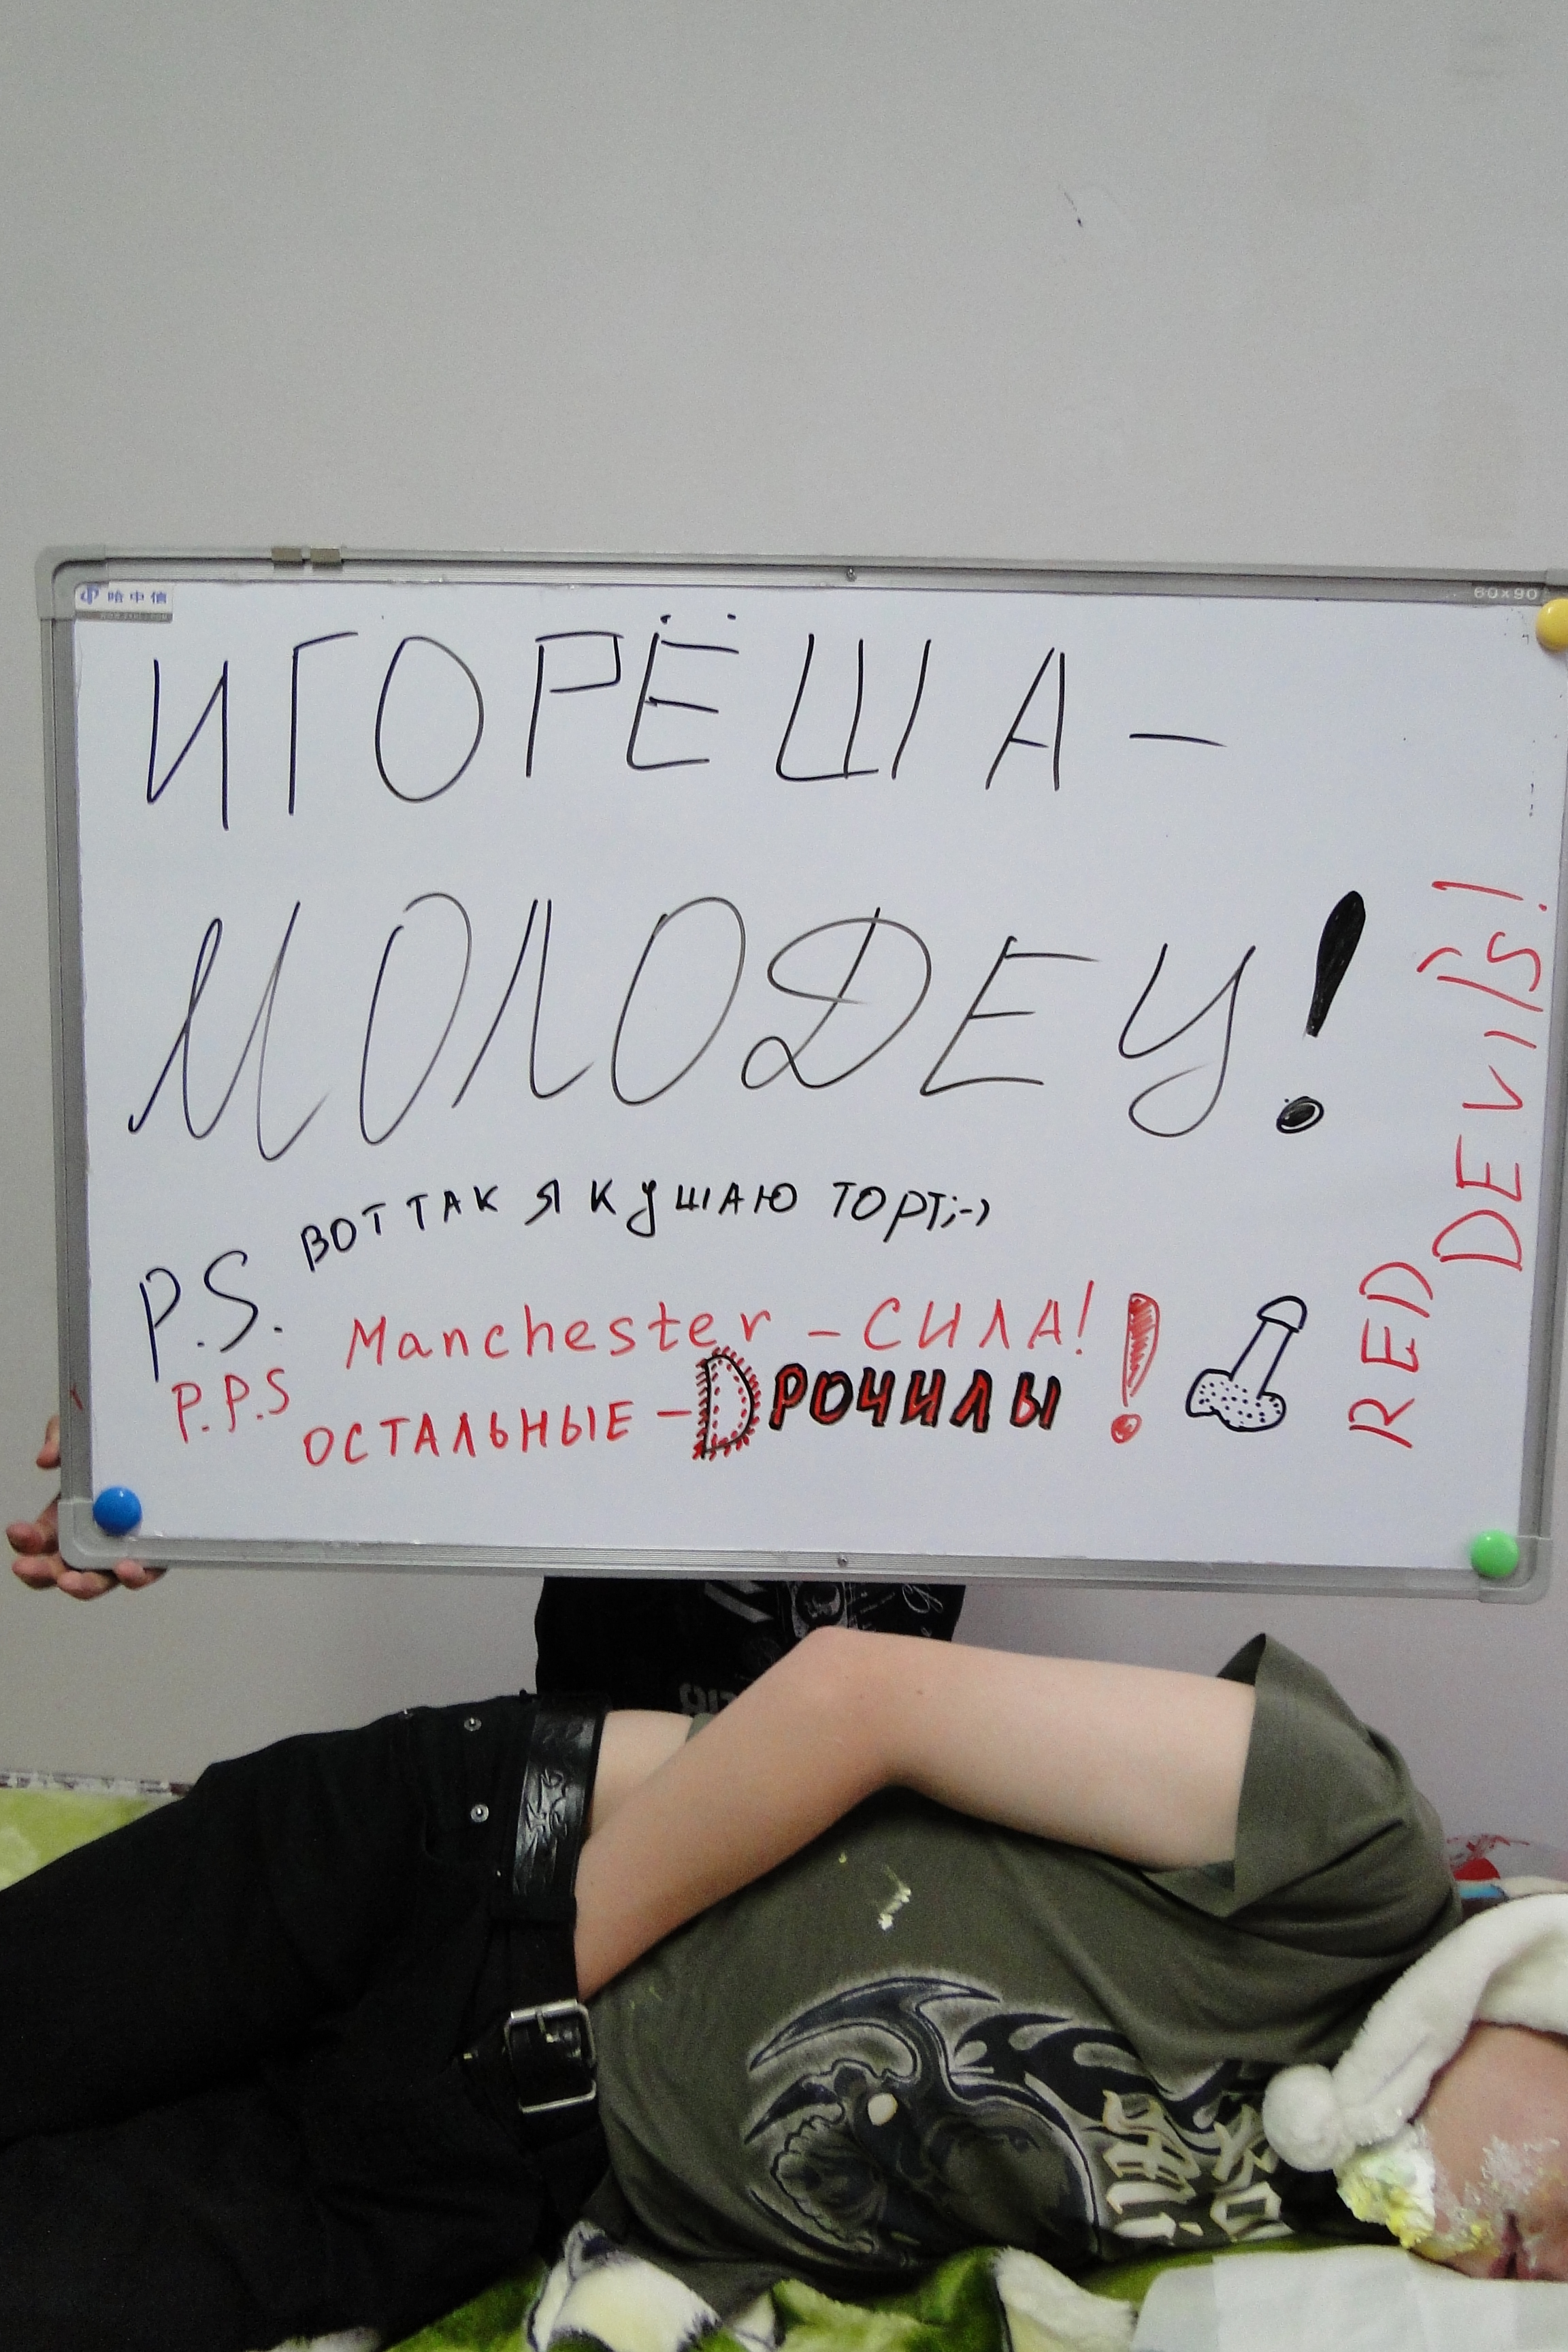 哈中信
60x90
ИГОРЁША –
МОЛОДЕЦ!
P.S. ВОТ ТАК Я КУШАЮ ТОРТ;-)
P.P.S Manchester – СИЛА!
ОСТАЛЬНЫЕ – DРОЧИЛЫ!
RED
DEVilS!